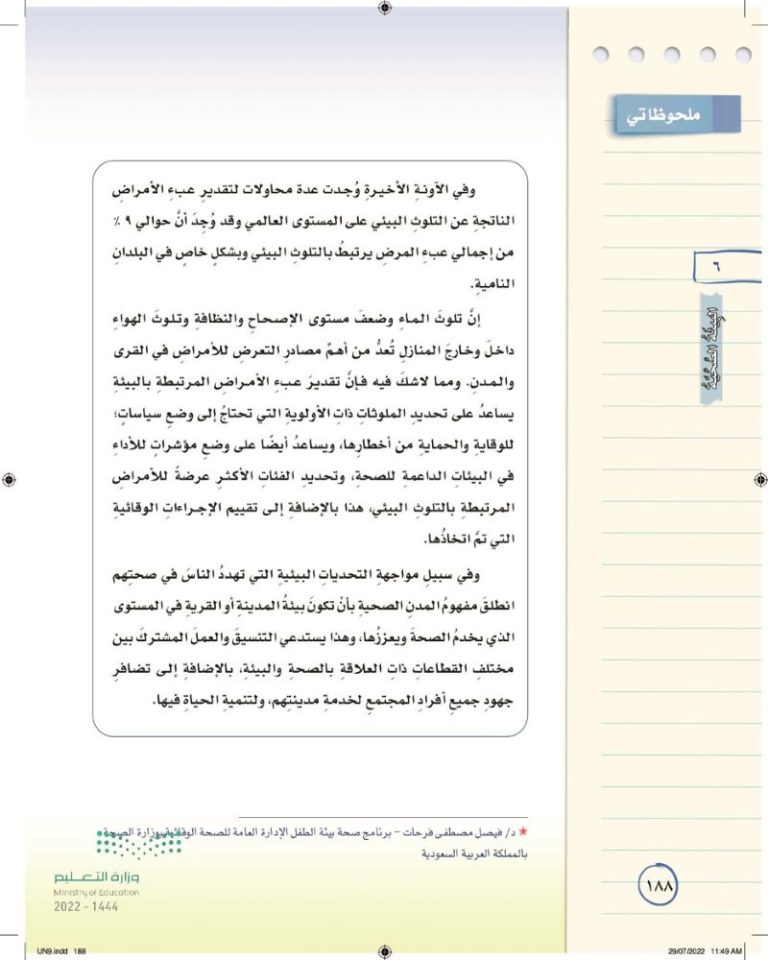 ملحوظاتي
٦
البيئة الصحية
وفي الآونةِ الأخيرةِ وُجدت عدة محاولات لتقديرِ عبءِ الأمراضِ
الناتجةِ عن التلوثِ البيئي على المستوى العالمي وقد وُجِدَ أنَّ حوالي ٩ ٪
من إجمالي عبءِ المرضِ يرتبطُ بالتلوثِ البيئي وبشكلٍ خاص في البلدانِ
الناميةِ.
إنَّ تلوثَ الماءِ وضعفَ مستوى الإصحاحِ والنظافةِ وتلوثَ الهواءِ
داخلَ وخارجَ المنازلِ تُعدُّ من أهمِّ مصادرِ التعرضِ للأمراضِ في القرى
والمدنِ. ومما لاشكَ فيه فإنَّ تقديرَ عبءِ الأمراضِ المرتبطةِ بالبيئةِ
يساعدُ على تحديدِ الملوثاتِ ذاتِ الأولويةِ التي تحتاجُ إلى وضعِ سياساتٍ؛
للوقايةِ والحمايةِ من أخطارِها، ويساعدُ أيضًا على وضعِ مؤشراتٍ للأداءِ
في البيئاتِ الداعمةِ للصحةِ، وتحديدِ الفئاتِ الأكثرِ عرضةً للأمراضِ
المرتبطةِ بالتلوثِ البيئي، هذا بالإضافةِ إلى تقييمِ الإجراءاتِ الوقائيةِ
التي تمَّ اتخاذُها.
وفي سبيلِ مواجهةِ التحدياتِ البيئيةِ التي تهددُ الناسَ في صحتِهم
انطلقَ مفهومُ المدنِ الصحيةِ بأنْ تكونَ بيئةُ المدينةِ أو القريةِ في المستوى
الذي يخدمُ الصحةَ ويعززُها، وهذا يستدعي التنسيقَ والعملَ المشتركَ بين
مختلفِ القطاعاتِ ذاتِ العلاقةِ بالصحةِ والبيئةِ، بالإضافةِ إلى تضافرِ
جهودِ جميعِ أفرادِ المجتمعِ لخدمةِ مدينتِهم، ولتنميةِ الحياةِ فيها.
★ د/ فيصل مصطفى فرحات – برنامج صحة بيئة الطفل الإدارة العامة للصحة الوقائية بوزارة الصحة
بالمملكة العربية السعودية
وزارة التعليم
Ministry of Education
2022 - 1444
١٨٨
UN9.indd 188
29/07/2022 11:49 AM